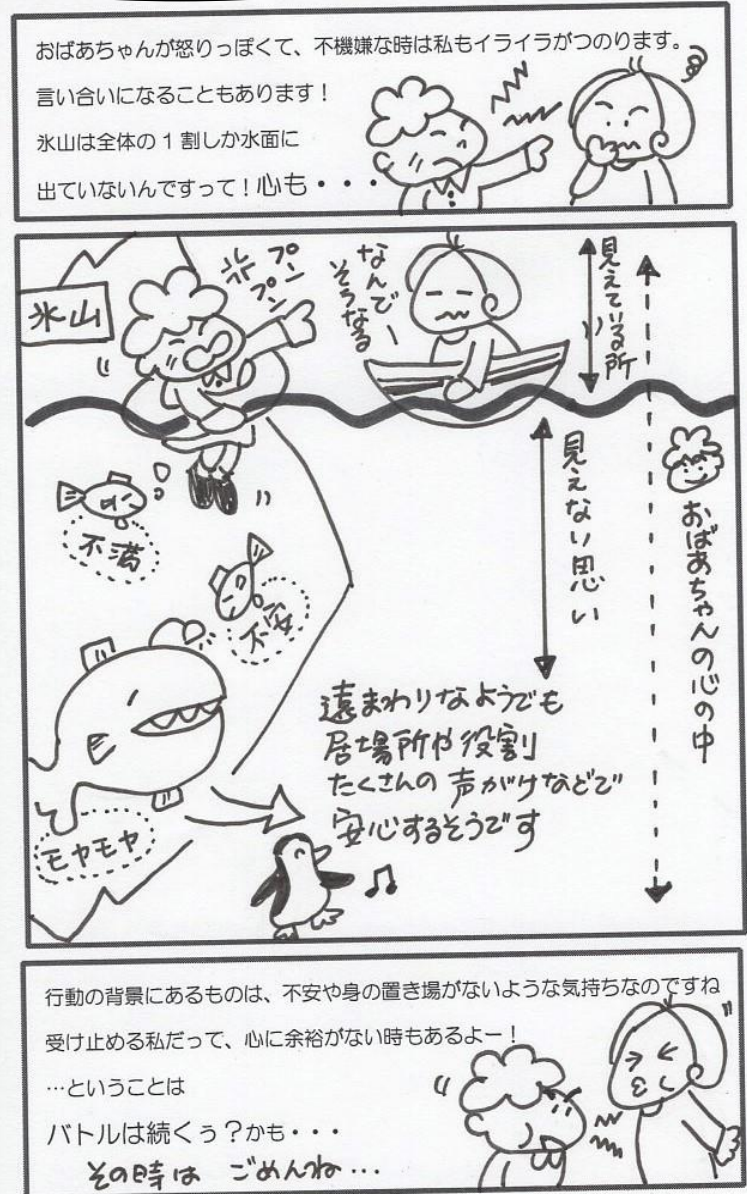 おばあちゃんが怒りっぽくて、不機嫌な時は私もイライラがつのります。
言い合いになることもあります！
氷山は全体の1割しか水面に
出ていないんですって！心も・・・
氷山
プンプン
なんでー
そうなる
見えている所
見えない思い
おばあちゃんの心の中
不満
不安
モヤモヤ
遠まわりなようでも
居場所や役割
たくさんの声がけなどで
安心するそうです
行動の背景にあるものは、不安や身の置き場がないような気持ちなのですね
受け止める私だって、心に余裕がない時もあるよー！
…ということは
バトルは続くぅ？かも・・・
その時は ごめんね…